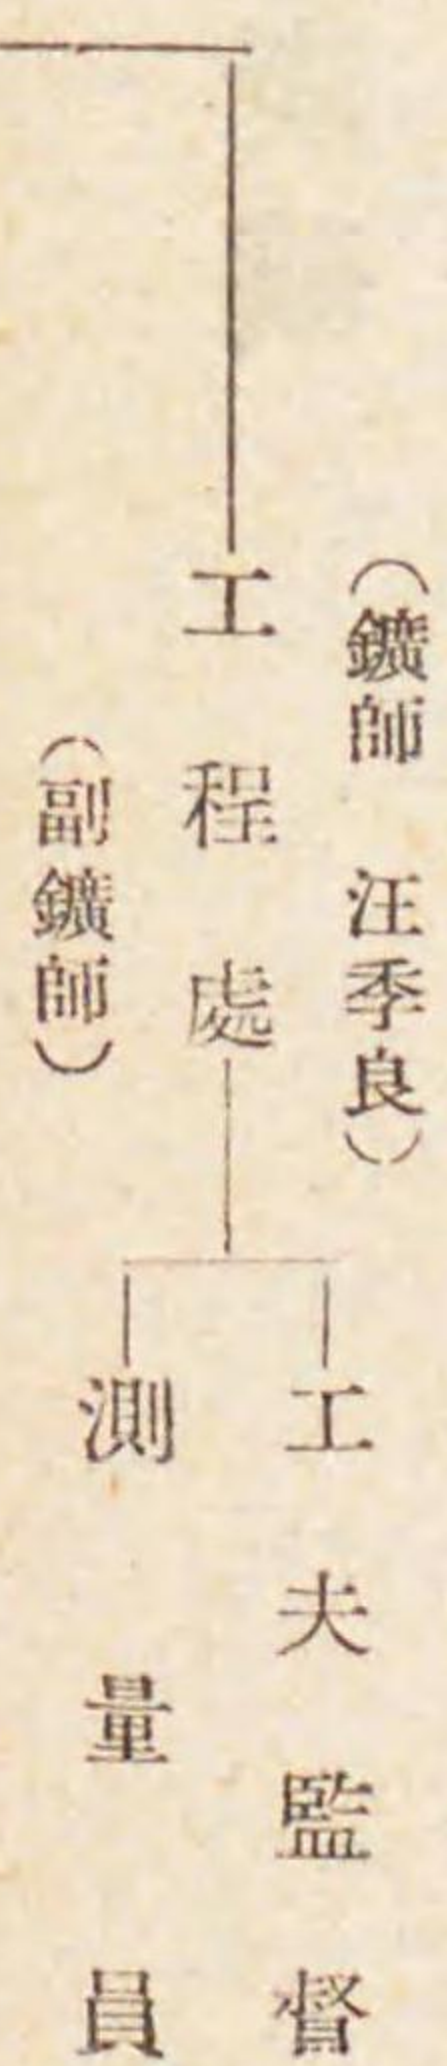 (鑛師 汪季良)
工程處
(副鑛師)
工夫監督
測量員